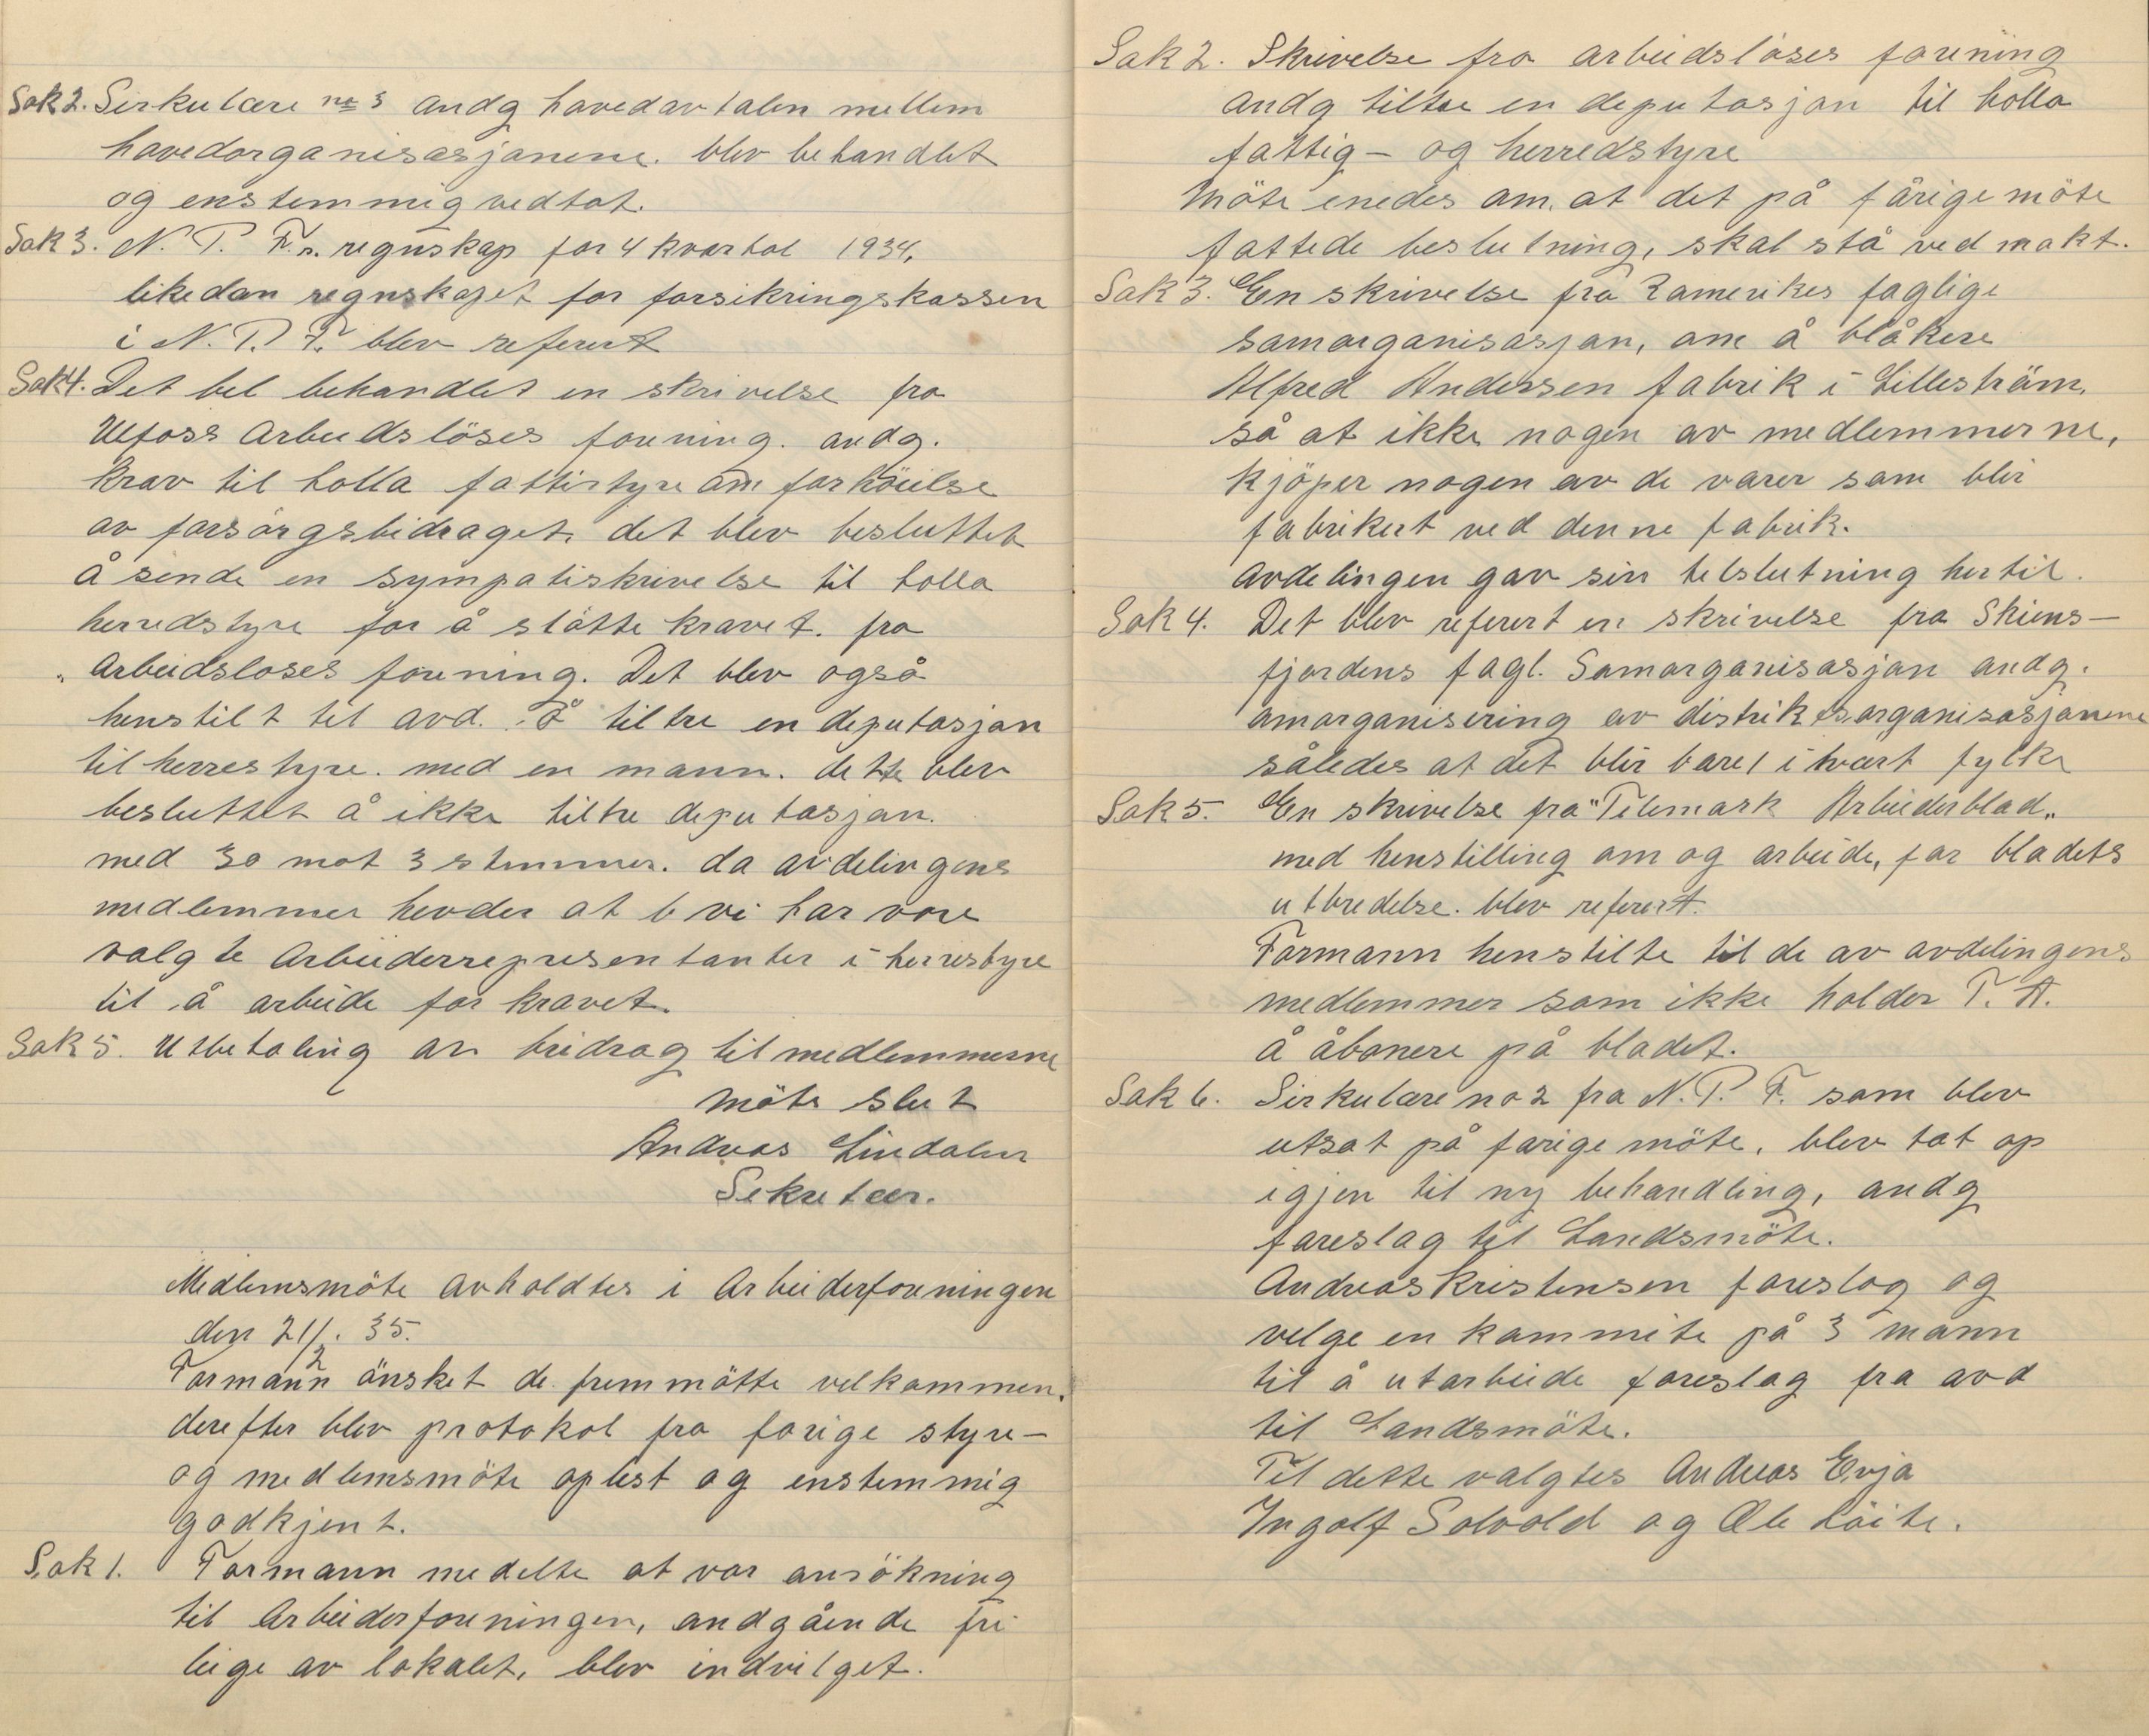 Sak 2. Sirkulære no 3 andg havedavtalen mellem
havedorganisasjonene. blev behandlet
og enstemmig vedtat.
Sak 3. N. P. F.s. regnskap for 4 kvartal 1934,
likedan regnskapet for forsikringskassen
i N. P. F. blev referert
Sak 4. Det bel behandlet en skrivelse fra
Ulfoss Arbeidslöses forening. andg.
krav til holla fattistyre om forhöielse
av forsörgsbidraget, det blev besluttet
å sende en sympatiskrivelse til holla
herredstyre for å stötte kravet. fra
Arbeidsloses forening. Det blev også
henstilt til avd. å tiltre en deputasjon
til herrestyre. med en mann. dette blev
besluttet å ikke tiltre deputasjon.
med 30 mot 3 stemmer. da avdelingens
medlemmer hevder at vi har vore
valgte Arbeiderrepresentanter i herrestyre
til å arbeide for kravet.
Sak 5. Utbetaling av beidrag til medlemmerne
Möte slut
Andreas Lindalen
Sekretær.
Medlemsmöte avholdtes i Arbeiderforeningen
den 21/2. 35.
Formann önsket de fremmötte velkommen.
derefter blev protokol fra forige styre-
og medlemsmöte oplest og enstemmig
godkjent.
Sak 1. Formann medelte at vor ansökning
til Arbeiderforeningen, andgående fri
leige av lokalet, blev indvilget.
Sak 2. Skrivelse fra arbeidslöses forening
andg tiltre en deputasjon til holla
fattig- og herredstyre
Möte enedes om. at det på fårige möte
fattede beslutning, skal stå ved makt.
Sak 3. En skrivelse fra Romerikes faglige
samorganisasjon, om å blåkere
Alfred Andersen fabrik i Lilleström,
så at ikke nogen av medlemmerne,
kjöper nogen av de varer som blir
fabrikert ved denne fabrik.
Avdelingen gav sin telslutning hertil.
Sak 4. Det blev referert en skrivelse fra Skiens-
fjordens fagl. Samorganisasjon andg.
omorganisering av distriktsorganisasjonene
således at det blir bare 1 i hvert fylke
Sak 5. En skrivelse fra "Telemark Arbeiderblad"
med henstilling om og arbeide, for bladets
utbredelse. blev referert.
Formann henstilte til de av avdelingens
medlemmer som ikke holder T. A.
å åbonere på bladet.
Sak 6. Sirkulære no 2 fra N. P. F. som blev
utsat på forige möte, blev tat op
igjen til ny behandling, andg
foreslag til Landsmöte.
Andreas Kristensen foreslog og
velge en kommite på 3 mann
til å utarbeide foreslag fra avd
til Landsmöte.
Til dette valgtes Andreas Evja
Ingolf Solvold og Ole Löite.